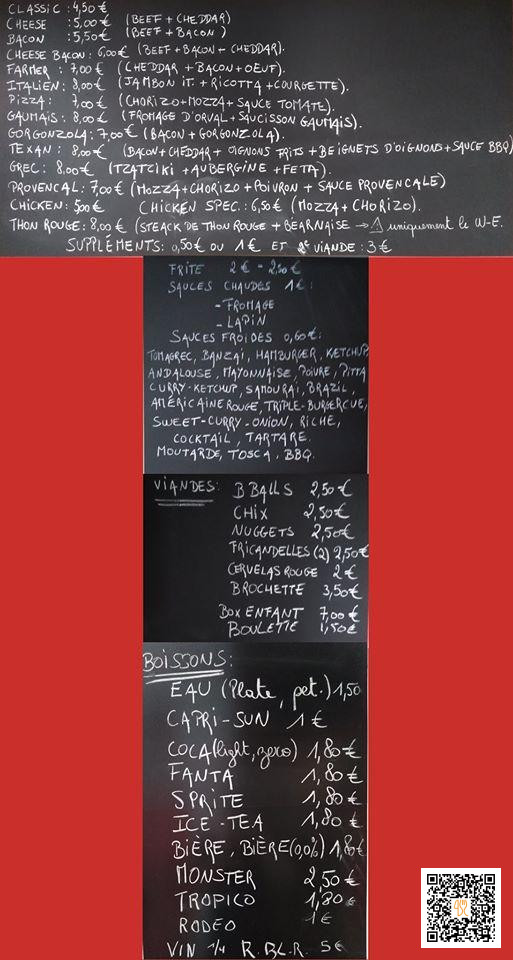 CLASSIC : 4,50€
CHEESE : 5,00€ (BEEF + CHEDDAR)
BACON : 5,50€ (BEEF + BACON)
CHEESE BACON : 6,00€ (BEEF + BACON + CHEDDAR).
FARMER : 7,00€ (CHEDDAR + BACON + OEUF).
ITALIEN : 8,00€ (JAMBON IT. + RICOTTA + COURGETTE).
PIZZA : 7,00€ (CHORIZO + MOZZA + SAUCE TOMATE).
GAUMAIS : 8,00€ (FROMAGE D'ORVAL + SAUCISSON GAUMAIS).
GORGONZOLA : 7,00€ (BACON + GORGONZOLA).
TEXAN : 8,00€ (BACON + CHEDDAR + OIGNONS FRITS + BEIGNETS D'OIGNONS + SAUCE BBQ)
GREC : 8,00€ (TZATZIKI + AUBERGINE + FETA).
PROVENCAL : 7,00€ (MOZZA + CHORIZO + POIVRON + SAUCE PROVENCALE)
CHICKEN : 5,00€ CHICKEN SPEC. : 6,50€ (MOZZA + CHORIZO).
THON ROUGE : 8,00€ (STEACK DE THON ROUGE + BEARNAISE → ⚠ uniquement le W-E.
SUPPLÉMENTS : 0,50€ OU 1€ ET 2e VIANDE : 3€
FRITE 2€ - 2,50€
SAUCES CHAUDES 1€ :
- FROMAGE
- LAPIN
SAUCES FROIDES 0,60€ :
TOMAGREC, BANZAI, HAMBURGER, KETCHUP,
ANDALOUSE, MAYONNAISE, POIVRE, PITTA
CURRY-KETCHUP, SAMOURAI, BRAZIL,
AMÉRICAINE ROUGE, TRIPLE-BURGERCUE,
SWEET-CURRY-ONION, RICHE,
COCKTAIL, TARTARE.
MOUTARDE, TOSCA, BBQ.
VIANDES : B BALLS 2,50€
CHIX 2,50€
NUGGETS 2,50€
FRICANDELLES (2) 2,50€
CERVELAS ROUGE 2€
BROCHETTE 3,50€
BOX ENFANT 7,00€
BOULETTE 1,50€
BOISSONS :
EAU (Plate, pet.) 1,50
CAPRI-SUN 1€
COCA (light, zero) 1,80€
FANTA 1,80€
SPRITE 1,80€
ICE-TEA 1,80€
BIÈRE, BIÈRE (0,0%) 1,80€
MONSTER 2,50€
TROPICO 1,80€
RODEO 1€
VIN 1/4 R. BL. R. 5€